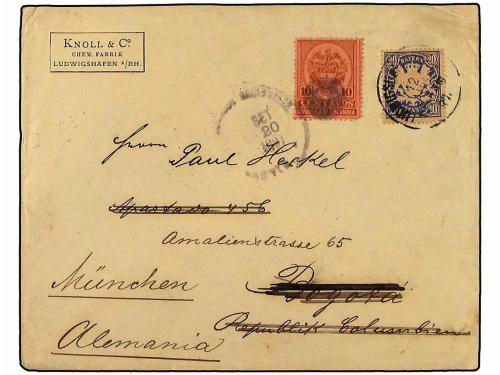 KNOLL & Cº
CHEM. FABRIK
LUDWIGSHAFEN A/RH.
10 10
CENTAVOS
BAYERN
20 20
PFENNIG
20
12
Herrn Paul Heckel
Apartado 456
Amalienstrasse 65
München Bogotá
Republik Columbien
Alemania